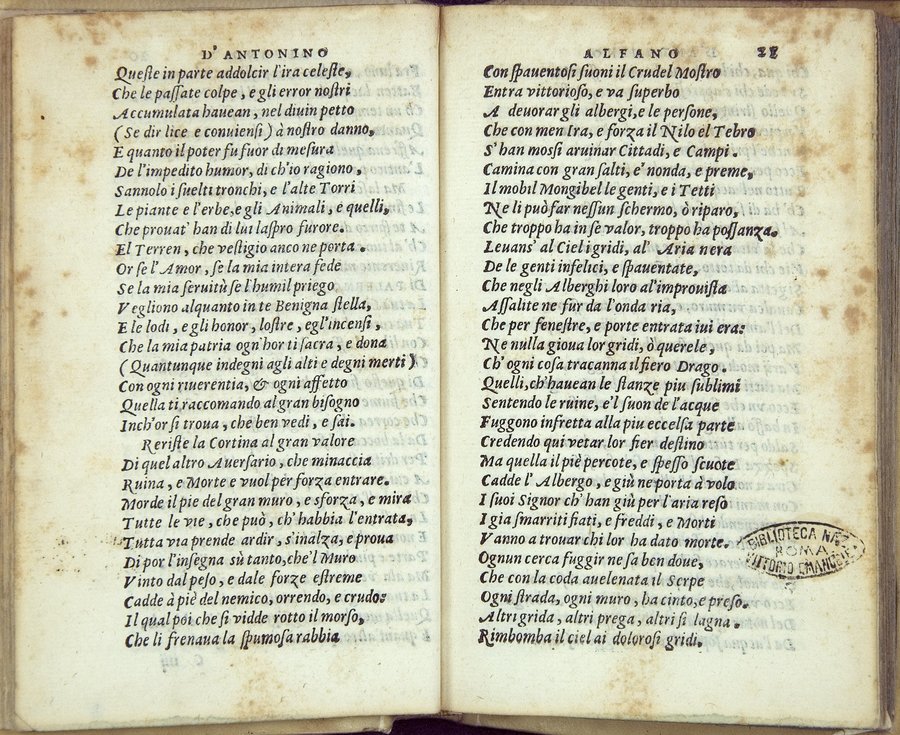 D'ANTONINO
Queste in parte addolcir l'ira celeste,
Che le passate colpe, e gli error nostri
Accumulata hauean, nel diuin petto
(Se dir lice e conuiensi) à nostro danno,
E quanto il poter fu fuor di mesura
De l'impedito humor, di ch'io ragiono,
Sannolo i suelti tronchi, e l'alte Torri
Le piante e l'erbe,e gli Animali, e quelli,
Che prouat' han di lui laspro furore.
El Terren, che vestigio anco ne porta.
Or se l'Amor, se la mia intera fede
Se la mia seruitù se l'humil priego
Vegliono alquanto in te Benigna stella,
E le lodi, e gli honor, lostre, egl'incensi,
Che la mia patria ogn'hor ti sacra, e dona
(Quantunque indegni agli alti e degni merti)
Con ogni riuerentia, & ogni affetto
Quella ti raccomando al gran bisogno
Inch'or si troua, che ben vedi, e sai.
Reriste la Cortina al gran valore
Di quel altro Auersario, che minaccia
Ruina, e Morte e vuol per forza entrare.
Morde il pie del gran muro, e sforza, e mira
Tutte le vie, che può, ch'habbia l'entrata,
Tutta via prende ardir, s'inalza, e proua
Di por l'insegna sù tanto, che'l Muro
Vinto dal peso, e dale forze estreme
Cadde à piè del nemico, orrendo, e crudo:
Il qual poi che si vidde rotto il morso,
Che li frenaua la spumosa rabbia
ALFANO 28
Con spauentosi suoni il Crudel Mostro
Entra vittorioso, e va superbo
A deuorar gli albergi, e le persone,
Che con men Ira, e forza il Nilo el Tebro
S'han mossi aruinar Cittadi, e Campi.
Camina con gran salti, e' nonda, e preme,
Il mobil Mongibel le genti, e i Tetti
Ne li può far nessun schermo, ò riparo,
Che troppo ha in se valor, troppo ha possanza.
Leuans' al Ciel i gridi, al' Aria nera
De le genti infelici, e spauentate,
Che negli Alberghi loro al'improuista
Assalite ne fur da l'onda ria,
Che per fenestre, e porte entrata iui era:
Ne nulla gioua lor gridi, ò querele,
Ch'ogni cosa tracanna il fiero Drago.
Quelli, ch'hauean le stanze piu sublimi
Sentendo le ruine, e'l suon de l'acque
Fuggono infretta alla piu eccelsa parte
Credendo qui vetar lor fier destino
Ma quella il piè percote, e spesso scuote
Cadde l'Albergo, e giù ne porta à volo
I suoi Signor ch'han giù per l'aria reso
I gia smarriti fiati, e freddi, e Morti
Vanno a trouar chi lor ha dato morte.
Ognun cerca fuggir ne sa ben doue,
Che con la coda auelenata il Serpe
Ogni strada, ogni muro, ha cinto, e preso.
Altri grida, altri prega, altri si lagna.
Rimbomba il ciel ai dolorosi gridi.
BIBLIOTECA NAZ
ROMA
VITTORIO EMANUELE